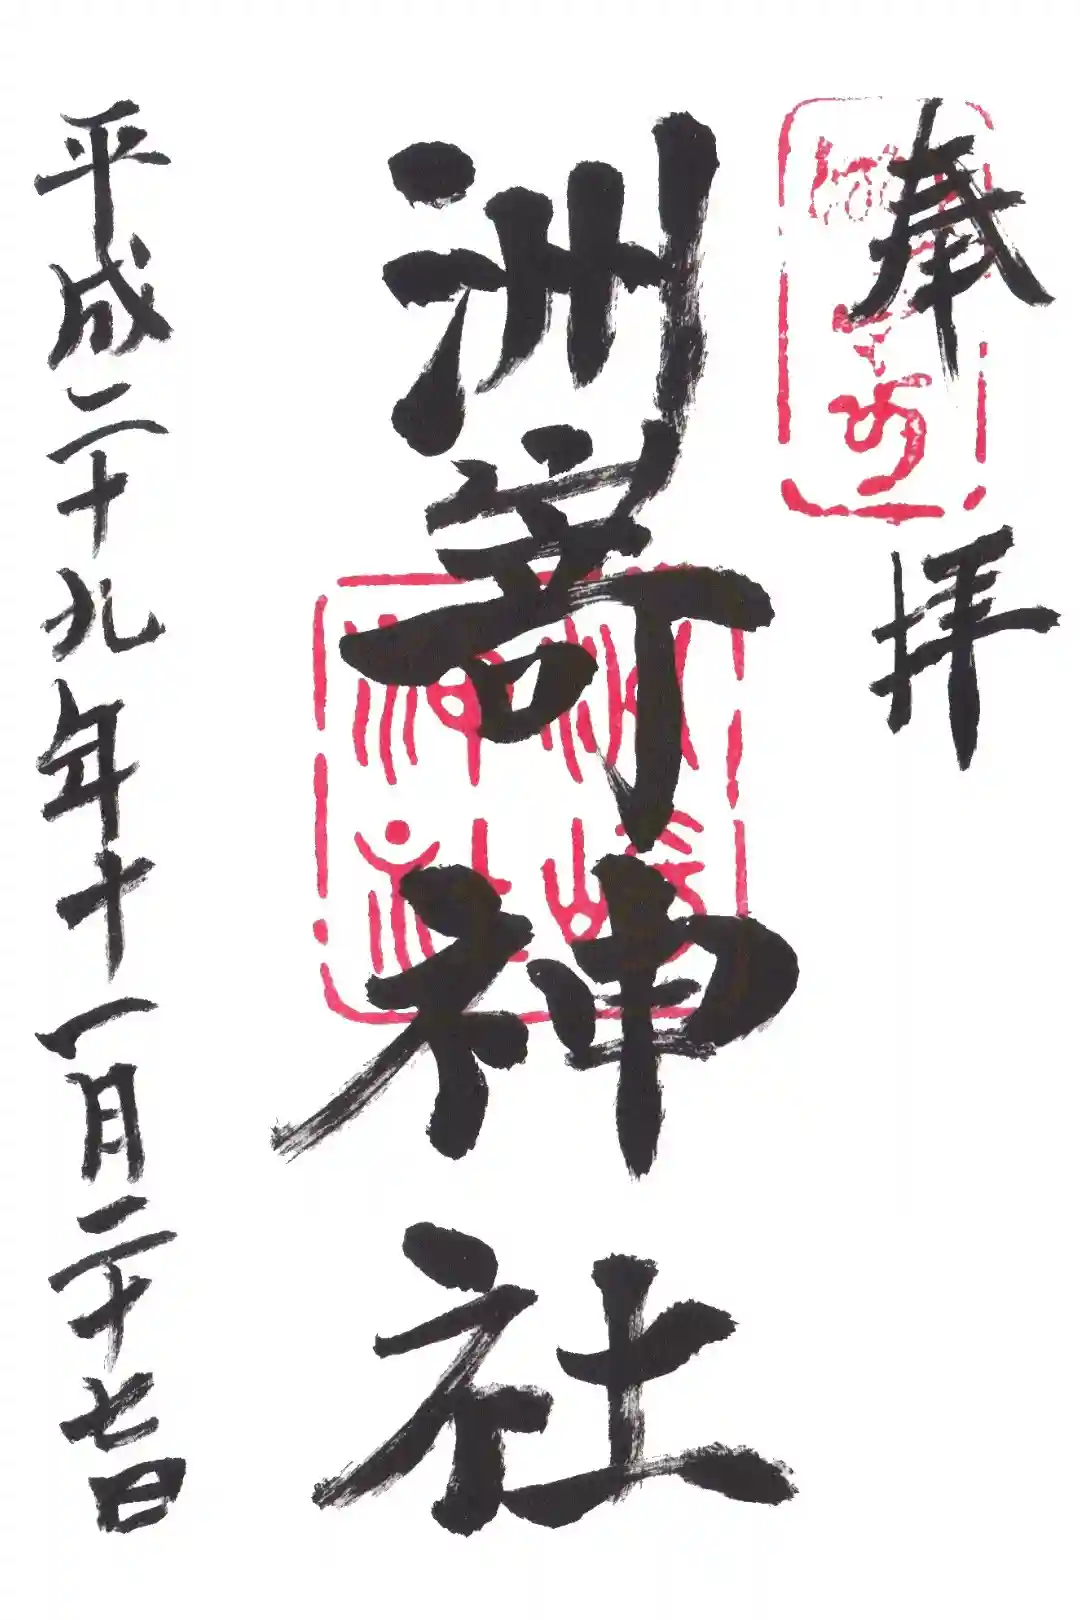 奉拝
洲嵜神社
洲崎
神社
平成二十九年十一月二十七日